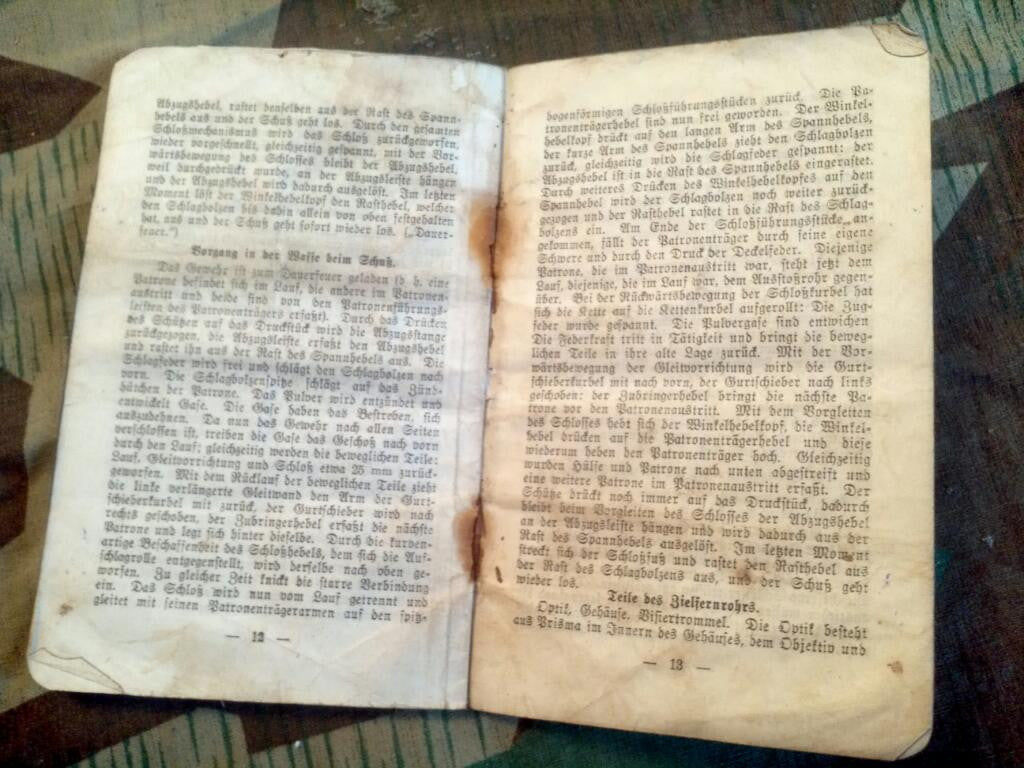 Abzugshebel, rastet denselben aus der Rast des Spann-
hebels aus und der Schuß geht los. Durch den gesamten
Schloßmechanismus wird das Schloß zurückgeworfen,
wieder vorgeschnellt, gleichzeitig gespannt, mit der Vor-
wärtsbewegung des Schlosses bleibt der Abzugshebel,
weil durchgedrückt wurde, an der Abzugsleiste hängen
und der Abzugshebel wird dadurch ausgelöst. Im letzten
Moment löst der Winkelhebelkopf den Rasthebel, welcher
den Schlagbolzen bis dahin allein von oben festgehalten
hat, aus und der Schuß geht sofort wieder los. („Dauer-
feuer.“)
Vorgang in der Waffe beim Schuß.
Das Gewehr ist zum Dauerfeuer geladen (d. h. eine
Patrone befindet sich im Lauf, die andere im Patronen-
austritt und beide sind von den Patronenführungs-
leisten des Patronenträgers erfaßt). Durch das Drücken
des Schützen auf das Druckstück wird die Abzugsstange
zurückgezogen, die Abzugsleiste erfaßt den Abzugshebel
und rastet ihn aus der Rast des Spannhebels aus. Die
Schlagfeder wird frei und schlägt den Schlagbolzen nach
vorn. Die Schlagbolzenspitze schlägt auf das Zünd-
hütchen der Patrone. Das Pulver wird entzündet und
entwickelt Gase. Die Gase haben das Bestreben, sich
auszudehnen. Da nun das Gewehr nach allen Seiten
verschlossen ist, treiben die Gase das Geschoß nach vorn
durch den Lauf; gleichzeitig werden die beweglichen Teile:
Lauf, Gleitvorrichtung und Schloß etwa 25 mm zurück-
geworfen. Mit dem Rücklauf der beweglichen Teile zieht
die linke verlängerte Gleitwand den Arm der Gurt-
schieberkurbel mit zurück, der Gurtschieber wird nach
rechts geschoben, der Zubringerhebel erfaßt die nächste
Patrone und legt sich hinter dieselbe. Durch die kurven-
artige Beschaffenheit des Schloßhebels, dem sich die Auf-
schlagrolle entgegenstellt, wird derselbe nach oben ge-
worfen. Zu gleicher Zeit knickt die starre Verbindung
ein. Das Schloß wird nun vom Lauf getrennt und
gleitet mit seinen Patronenträgerarmen auf den spitz-
— 12 —
bogenförmigen Schloßführungsstücken zurück. Die Pa-
tronenträgerhebel sind nun frei geworden. Der Winkel-
hebelkopf drückt auf den langen Arm des Spannhebels,
der kurze Arm des Spannhebels zieht den Schlagbolzen
zurück, gleichzeitig wird die Schlagfeder gespannt: der
Abzugshebel ist in die Rast des Spannhebels eingerastet.
Durch weiteres Drücken des Winkelhebelkopfes auf den
Spannhebel wird der Schlagbolzen noch weiter zurück-
gezogen und der Rasthebel rastet in die Rast des Schlag-
bolzens ein. Am Ende der Schloßführungsstücke an-
gekommen, fällt der Patronenträger durch seine eigene
Schwere und durch den Druck der Deckelfeder. Diejenige
Patrone, die im Patronenaustritt war, steht jetzt dem
Lauf, diejenige, die im Lauf war, dem Ausstoßrohr gegen-
über. Bei der Rückwärtsbewegung der Schloßkurbel hat
sich die Kette auf die Kettenkurbel aufgerollt: Die Zug-
feder wurde gespannt. Die Pulvergase sind entwichen
Die Federkraft tritt in Tätigkeit und bringt die beweg-
lichen Teile in ihre alte Lage zurück. Mit der Vor-
wärtsbewegung der Gleitvorrichtung wird die Gurt-
schieberkurbel mit nach vorn, der Gurtschieber nach links
geschoben: der Zubringerhebel bringt die nächste Pa-
trone vor den Patronenaustritt. Mit dem Vorgleiten
des Schlosses hebt sich der Winkelhebelkopf, die Winkel-
hebel drücken auf die Patronenträgerhebel und diese
wiederum heben den Patronenträger hoch. Gleichzeitig
wurden Hülse und Patrone nach unten abgestreift und
eine weitere Patrone im Patronenaustritt erfaßt. Der
Schütze drückt noch immer auf das Druckstück, dadurch
bleibt beim Vorgleiten des Schlosses der Abzugshebel
an der Abzugsleiste hängen und wird dadurch aus der
Rast des Spannhebels ausgelöst. Im letzten Moment
streckt sich der Schloßfuß und rastet den Rasthebel aus
der Rast des Schlagbolzens aus, und der Schuß geht
wieder los.
Teile des Zielfernrohrs.
Optik, Gehäuse, Visiertrommel. Die Optik besteht
aus Prisma im Innern des Gehäuses, dem Objektiv und
— 13 —